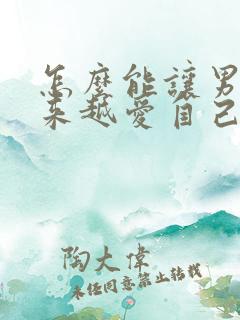 怎麼能讓男
來越愛自己
陶大偉
未经同意禁止转载